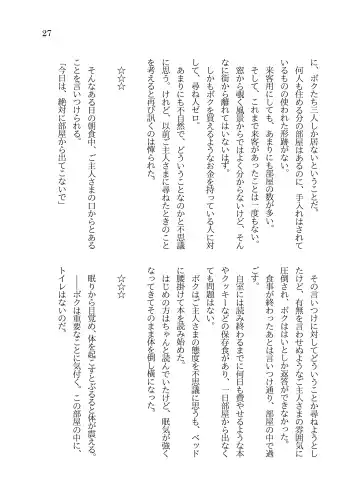 27
に、ボクたち三人しか居ないということだ。
何人も住める分の部屋はあるのに、手入れはされて
いるものの使われた形跡がない。
来客用にしても、あまりにも部屋の数が多い。
そして、これまで来客があったことは一度もない。
窓から覗く風景からではよく分からないけど、そん
なに街から離れてはいないはず。
しかもボクを買えるようなお金を持っている人に対
して、尋ね人ゼロ。
あまりにも不自然で、どういうことなのかと不思議
に思う。けれど、以前ご主人さまに尋ねたときのこと
を考えると再び訊くのは憚られた。
☆☆☆
そんなある日の朝食中、ご主人さまの口からとある
ことを言いつけられる。
「今日は、絶対に部屋から出てこないで」
その言い付けに対してどういうことか尋ねようとし
たけど、有無を言わせぬようなご主人さまの雰囲気に
圧倒され、ボクははいとしか返答ができなかった。
食事が終わったあとは言いつけ通り、部屋の中で過
ごす。
自室には読み終わるまでに何日も費やせるような本
やクッキーなどの保存食があり、一日部屋から出なく
ても問題はない。
ボクはご主人さまの態度を不思議に思うも、ベッド
に腰掛けて本を読み始めた。
はじめの方はちゃんと読んでいたけど、眠気が強く
なってきてそのまま体を倒し横になった。
☆☆☆
眠りから目覚め、体を起こすとぶるると体が震える。
――ボクは重要なことに気付く。この部屋の中に、
トイレはないのだ。